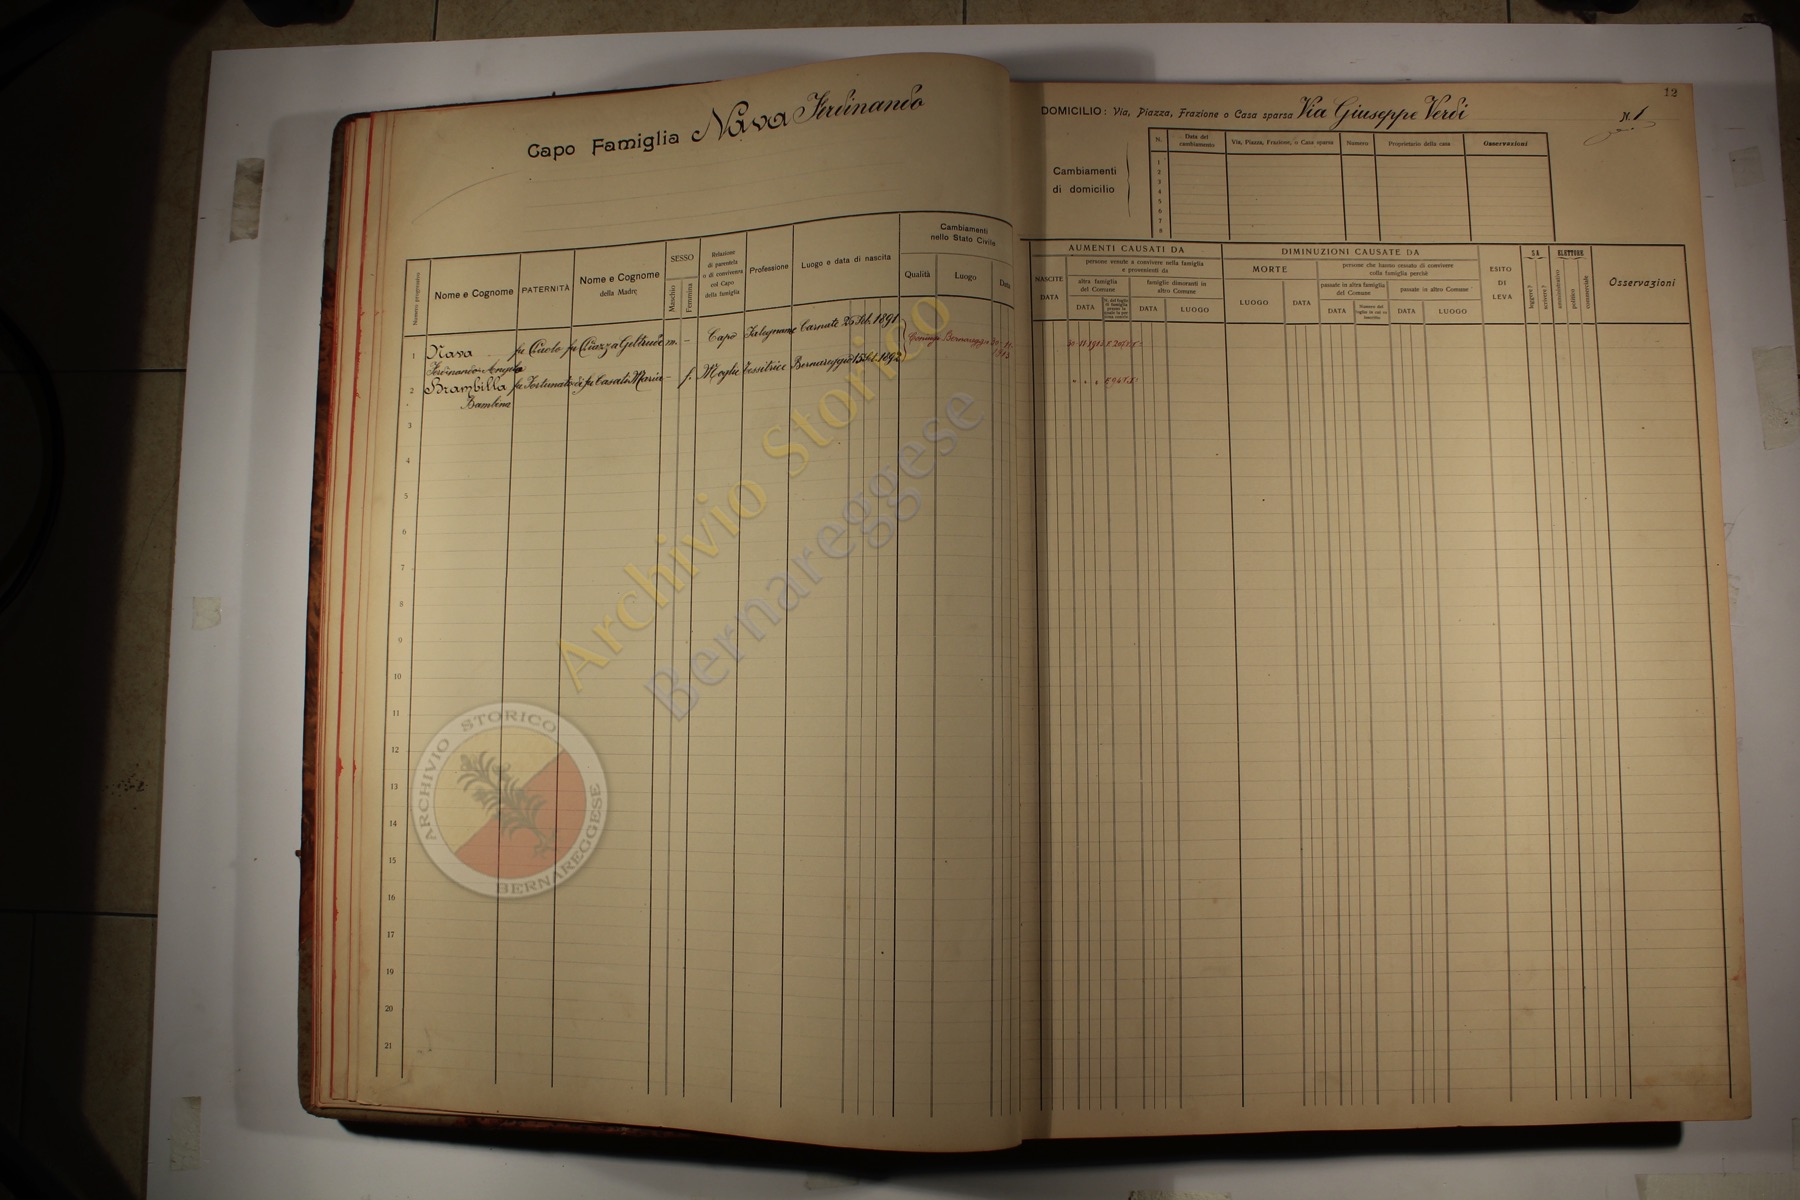 Capo Famiglia Nava Ferdinando
Numero progressivo
Nome e Cognome
PATERNITÀ
Nome e Cognome
della Madre
SESSO
Maschio
Femmina
Relazione
di parentela
o di convivenza
col Capo
della famiglia
Professione
Luogo e data di nascita
Cambiamenti
nello Stato Civile
Qualità
Luogo
Data
1 Nava fu Gelt­rude m. - Capo Falegname Carnate 26 1891
Ferdinando Angelo
2 Brambilla fu Fortunato fu Casati Maria - f. Moglie tessitrice Bernareggio 15 1892
Bambina
Bernareggio
3
4
5
6
7
8
9
10
11
12
13
14
15
16
17
18
19
20
21
12
DOMICILIO: Via, Piazza, Frazione o Casa sparsa Via Giuseppe Verdi N. 1
Cambiamenti
di domicilio
N.
Data del
cambiamento
Via, Piazza, Frazione, o Casa sparsa
Numero
Proprietario della casa
Osservazioni
1
2
3
4
5
6
7
8
NASCITE
DATA
AUMENTI CAUSATI DA
persone venute a convivere nella famiglia
e provenienti da
altra famiglia
del Comune
famiglie dimoranti in
altro Comune
DATA
DATA
LUOGO
DIMINUZIONI CAUSATE DA
MORTE
LUOGO
DATA
persone che hanno cessato di convivere
colla famiglia perchè
passate in altra famiglia
del Comune
passate in altro Comune
DATA
DATA
LUOGO
ESITO
DI
LEVA
SA
leggere?
scrivere?
ELETTORE
amministrativo
politico
commerciale
Osservazioni
Archivio Storico
Bernareggese
ARCHIVIO STORICO
BERNAREGGESE